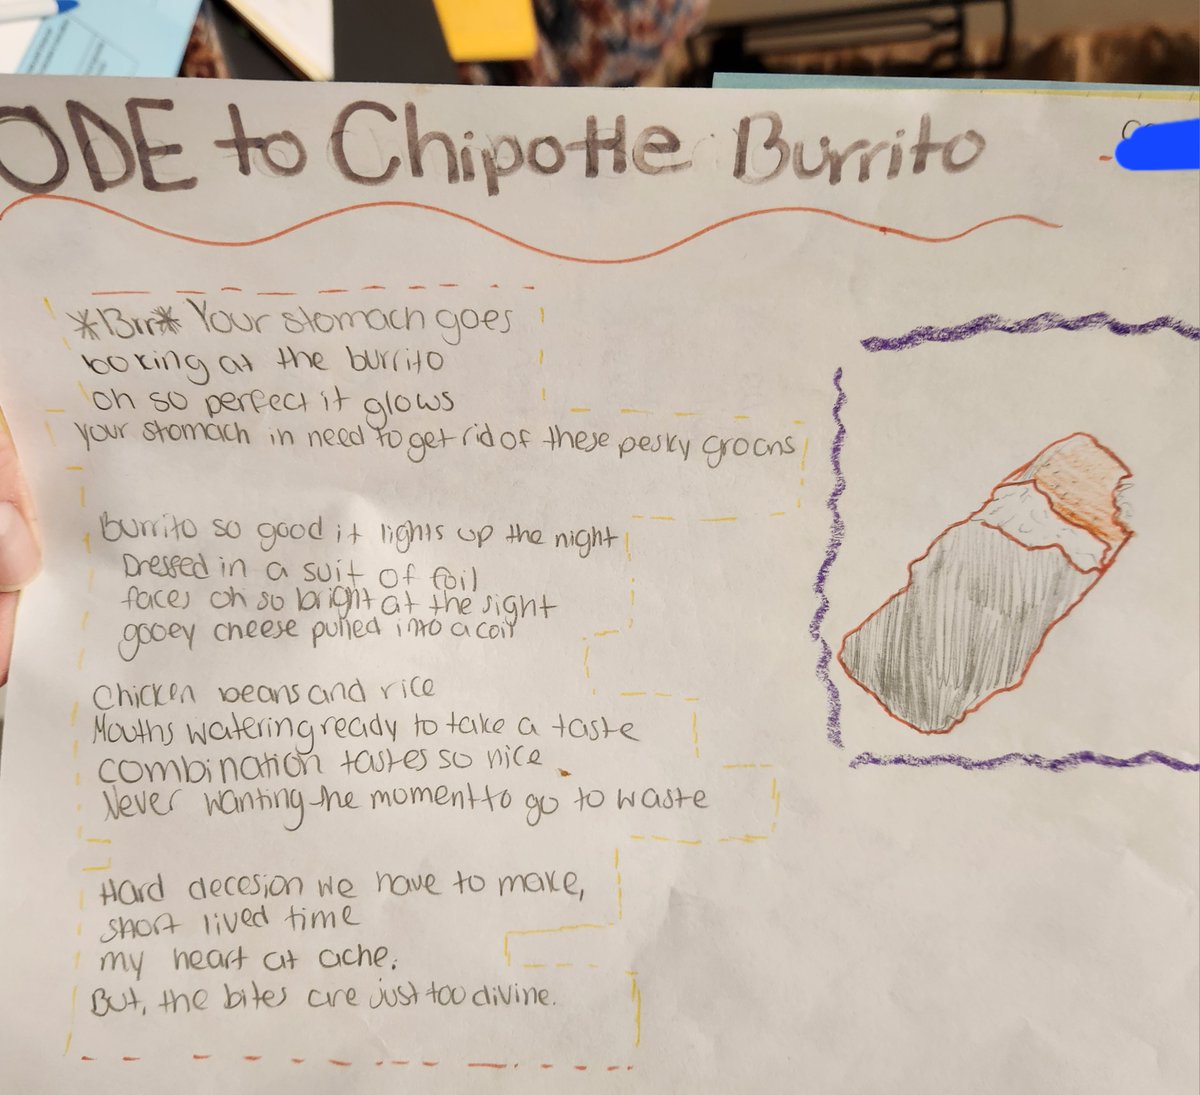 ODE to Chipotle Burrito
*Brr* Your stomach goes
boxing at the burrito
oh so perfect it glows
your stomach in need to get rid of these pesky groans
Burrito so good it lights up the night
Dressed in a suit of foil
faces oh so bright at the sight
gooey cheese pulled into a coil
Chicken beans and rice
Mouths watering ready to take a taste
combination tastes so nice
Never wanting the moment to go to waste
Hard decesion we have to make,
short lived time
my heart at ache.
But, the bites are just too divine.